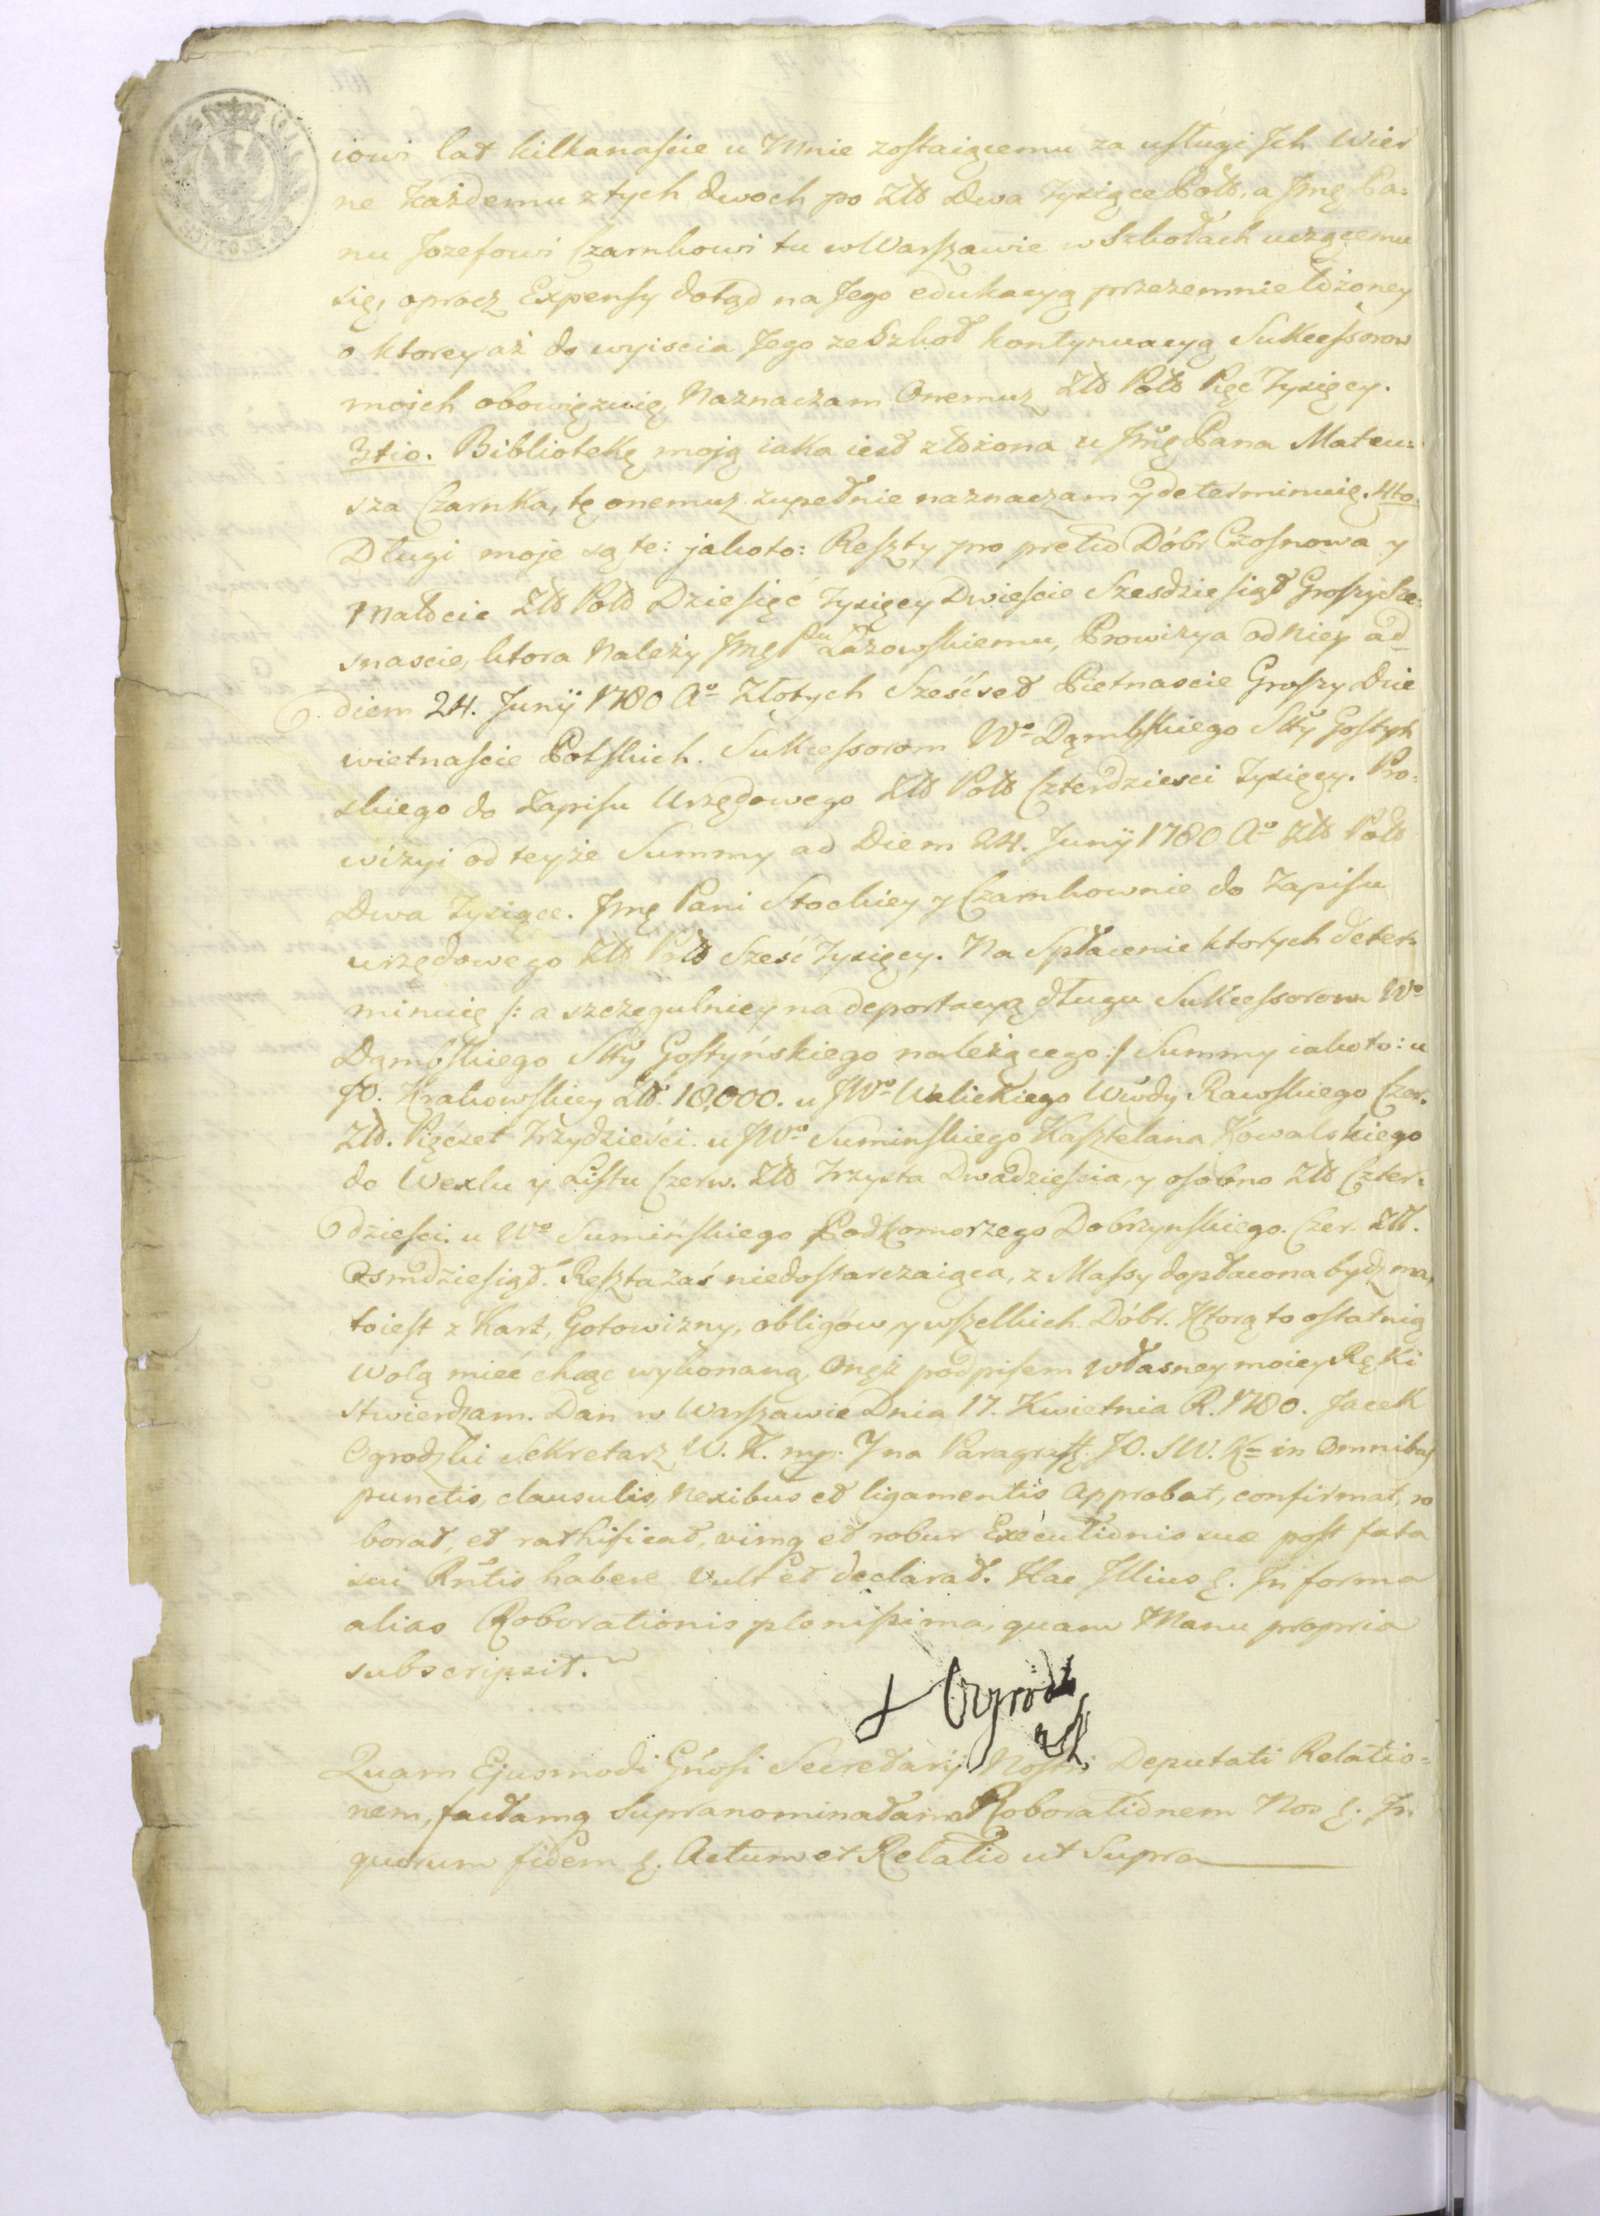 iowi lat kilkanaście u Mnie zostaiącemu za usługi Jch Wier
ne każdemu z tych dwoch po Złł Dwa Tysiące Polł, a Jmę Pa=
nu Jozefowi Czarnkowi tu w Warszawie w Szkołach uczącemu
się, oprocz Expensy dotąd na Jego edukacyą przezemnie łożoney
o ktorey aż do wyiscia Jego ze Szkoł kontynuacyą Sukcessorow
moich obowięzuię, Naznaczam Onemuz Złł Polł Pięć Tysięcy.
3tio. Bibliotekę moją iaka iest złożona u Jmę Pana Mateu=
sza Czarnka, tę onemuz zupełnie naznaczam y determinuię. 4to.
Długi moje są te: jakoto: Reszty pro pretio Dóbr Czosnowa y
Małocic Złł Polł Dziesięć Tysięcy Dwieście Szesdziesiąt Groszy Sze=
snascie, ktora Należy Jmę Pu Łazowskiemu, Prowizya od Niey ad
diem 24. Junij 1780 Ao Złotych Sześćset Pietnascie Groszy Dzie
wietnascie Polskich. Sukcessorom Wo Dąmbskiego Stty Gostyń
skiego do Zapisu Urzędowego Złł Polł Czterdziesci Tysięcy. Pro=
wizyi od teyże Summy ad Diem 24. Junij 1780 Ao Złł Polł
Dwa Tysiące. Jmę Pani Stockiey y Czarnkownie do Zapisu
urzędowego Złł Polł Sześć Tysięcy. Na Spłacenie ktorych deter=
minuię /: a szczegulniey na deportacyą długu Sukcessorom Wo
Dąmbskiego Stty Gostyńskiego należącego :/ Summy iakoto: u
JO. Krakowskiey Złł. 18,000. u JWo Walickiego Wwdy Rawskiego Czer.
Złł. Pięćset Trzydzieści. u JWo Suminskiego Kasztelana Kowalskiego
do Wexlu y Listu Czerw. Złł Trzysta Dwadziescia, y osobno Złł Czter=
dziesci. u Wo Sumińskiego Podkomorzego Dobrzynskiego. Czer. Złł.
Osmdziesiąt. Reszta zaś niedostarczaiąca, z Massy dopłacona bydz ma,
toiest z Kart, Gotowizny, obligów y wszelkich Dóbr. Ktorą to ostatnią
Wolą mieć chcąc wykonaną, Onęż podpisem własney moiey Ręki
stwierdzam. Dan w Warszawie Dnia 17. Kwietnia R. 1780. Jacek
Ogrodzki Sekretarz W. K. mp. In Omnibus
punctis, clausulis, Nexibus et ligamentis Approbat, confirmat, ro
borat, et rathificat, vimq et robur Executionis suæ post fata
sui Rntis habere Vult et declarat. Hac Illius &. In forma
alias Roborationis plenissima, quam Manu propria
subscripsit.
Ogrodz
zki
Quam Ejusmodi Gnosi Secretarij Nostri Deputati Relatio=
nem, factamq Supranominatam Roborationem Nos &. In
quorum fidem &. Actum et Relatio ut Supra